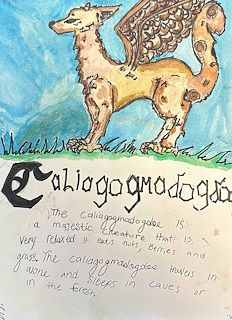 Caliagogmadogdoe
The caliagogmadogdoe is
a majestic creature that is
very relaxed it eats nuts, Berries and
grass. The caliagogmadogdoe travels in
alone and sleeps in caves or
in the forest